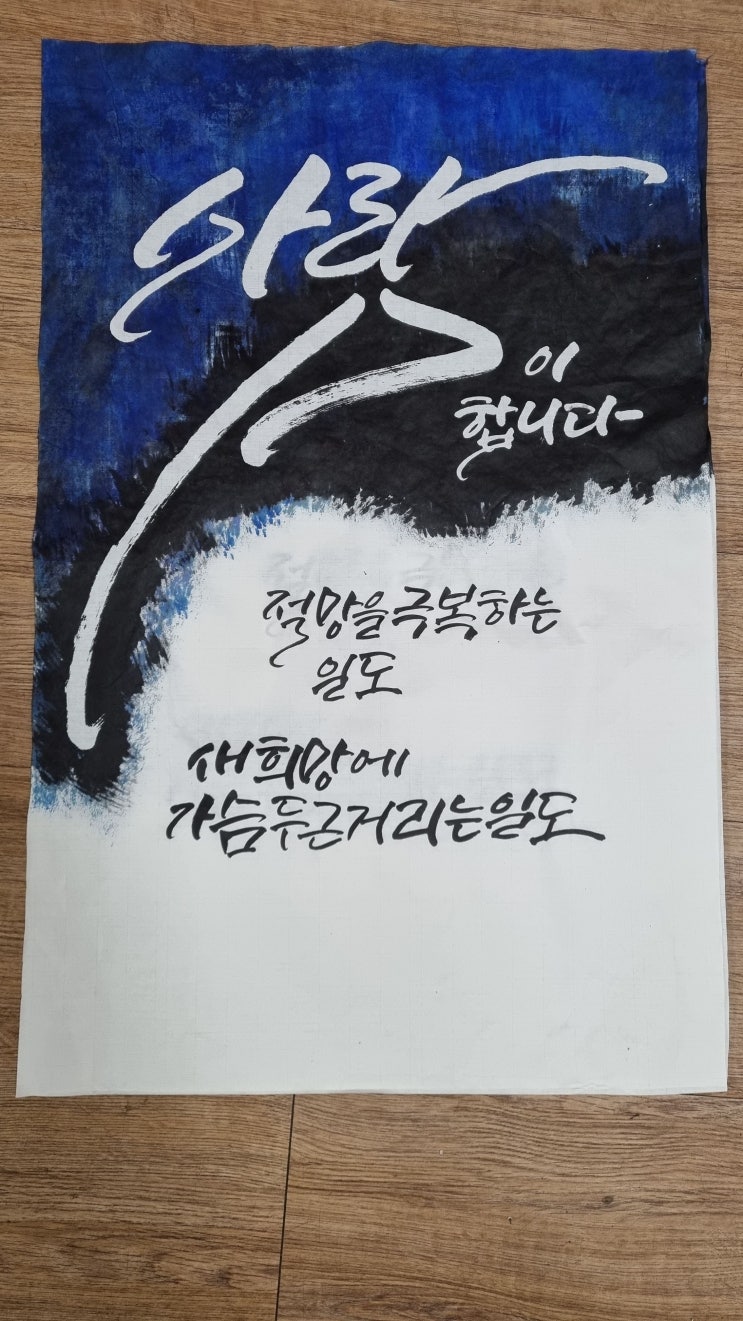 사람이
합니다
절망을 극복하는
일도
새 희망에
가슴 두근거리는 일도